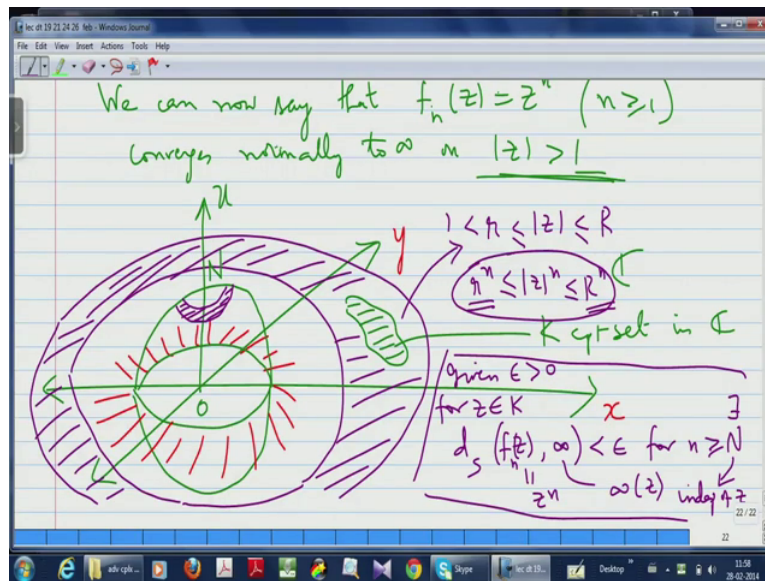 lec dt 19 21 24 26 feb - Windows Journal
File Edit View Insert Actions Tools Help
We can now say that fₙ(z) = zⁿ (n ≥ 1)
converges normally to ∞ on |z| > 1
u
N
y
1 < r ≤ |z| ≤ R
rⁿ ≤ |z|ⁿ ≤ Rⁿ
ℂ
K cpt set in ℂ
0
x
given ϵ > 0
for z ∈ K ∃
dₛ (fₙ(z), ∞) < ϵ for n ≥ N
|| zⁿ
∞(z) indep of z
22 / 22
22
adv cplx ...
Skype
lec dt 19...
Desktop
11:58
28-02-2014